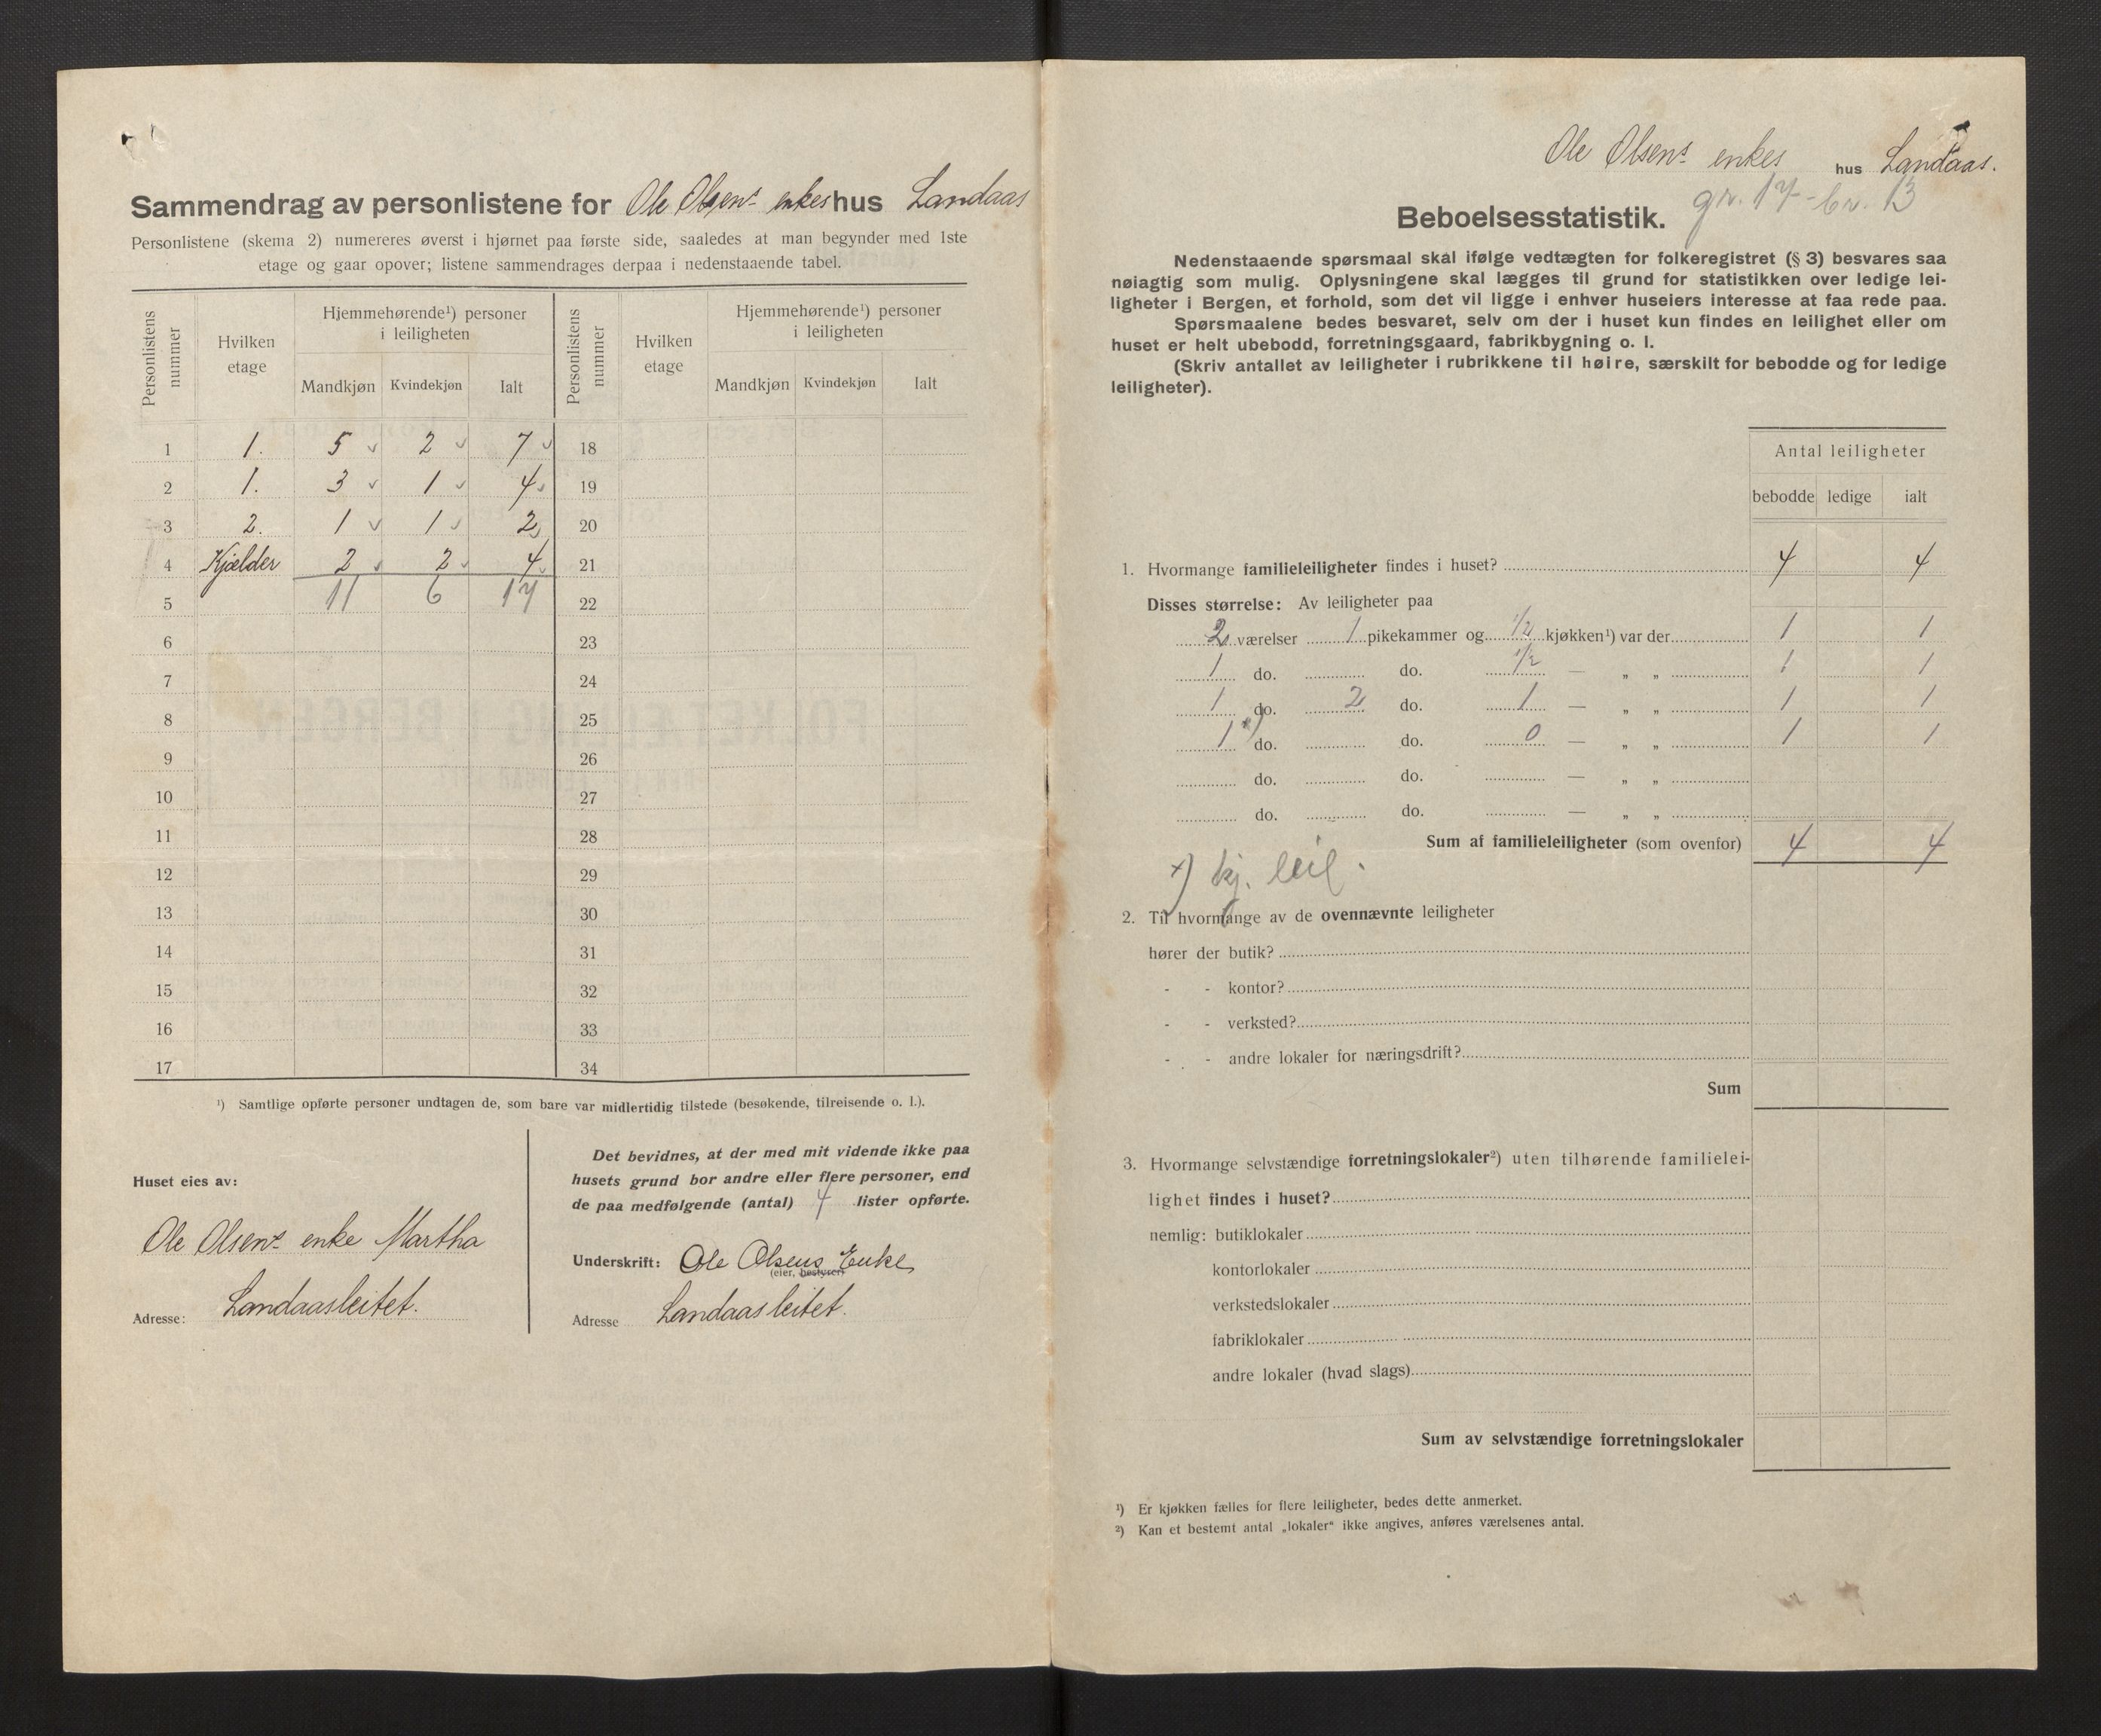 Sammendrag av personlistene for Ole Olsens enkes hus Landaas
Personlistene (skema 2) numereres øverst i hjørnet paa første side, saaledes at man begynder med 1ste
etage og gaar opover; listene sammendrages derpaa i nedenstaaende tabel.
Personlistens nummer
Hvilken etage
Hjemmehørende¹) personer i leiligheten
Mandkjøn Kvindekjøn Ialt
Personlistens nummer
Hvilken etage
Hjemmehørende¹) personer i leiligheten
Mandkjøn Kvindekjøn Ialt
1 1. 5 2 7 18
2 1. 3 1 4 19
3 2. 1 1 2 20
4 Kjælder 2 2 4 21
5 11 6 17 22
6 23
7 24
8 25
9 26
10 27
11 28
12 29
13 30
14 31
15 32
16 33
17 34
¹) Samtlige opførte personer undtagen de, som bare var midlertidig tilstede (besøkende, tilreisende o. l.).
Huset eies av:
Ole Olsens enke Martha
Adresse: Landaasleitet.
Det bevidnes, at der med mit vidende ikke paa
husets grund bor andre eller flere personer, end
de paa medfølgende (antal) 4 lister opførte.
Underskrift: Ole Olsens Enke
(eier, bestyrer)
Adresse Landaasleitet.
Ole Olsens enkes hus Landaas.
gr. 17 - br. 13
Beboelsesstatistik.
Nedenstaaende spørsmaal skal ifølge vedtægten for folkeregistret (§ 3) besvares saa
nøiagtig som mulig. Oplysningene skal lægges til grund for statistikken over ledige lei-
ligheter i Bergen, et forhold, som det vil ligge i enhver huseiers interesse at faa rede paa.
Spørsmaalene bedes besvaret, selv om der i huset kun findes en leilighet eller om
huset er helt ubebodd, forretningsgaard, fabrikbygning o. l.
(Skriv antallet av leiligheter i rubrikkene til høire, særskilt for bebodde og for ledige
leiligheter).
Antal leiligheter
bebodde ledige ialt
1. Hvormange familieleiligheter findes i huset? 4 4
Disses størrelse: Av leiligheter paa
2 værelser 1 pikekammer og 1/2 kjøkken¹) var der 1 1
1 do. do. 1/2 — „ „ 1 1
1 do. 2 do. 1 — „ „ 1 1
1 x) do. do. 0 — „ „ 1 1
do. do. — „ „
do. do. — „ „
Sum af familieleiligheter (som ovenfor) 4 4
x) kj. leil.
2. Til hvormange av de ovennævnte leiligheter
hører der butik?
- - kontor?
- - verksted?
- - andre lokaler for næringsdrift?
Sum
3. Hvormange selvstændige forretningslokaler²) uten tilhørende familielei-
lighet findes i huset?
nemlig: butiklokaler
kontorlokaler
verkstedslokaler
fabriklokaler
andre lokaler (hvad slags)
Sum av selvstændige forretningslokaler
¹) Er kjøkken fælles for flere leiligheter, bedes dette anmerket.
²) Kan et bestemt antal „lokaler“ ikke angives, anføres værelsenes antal.